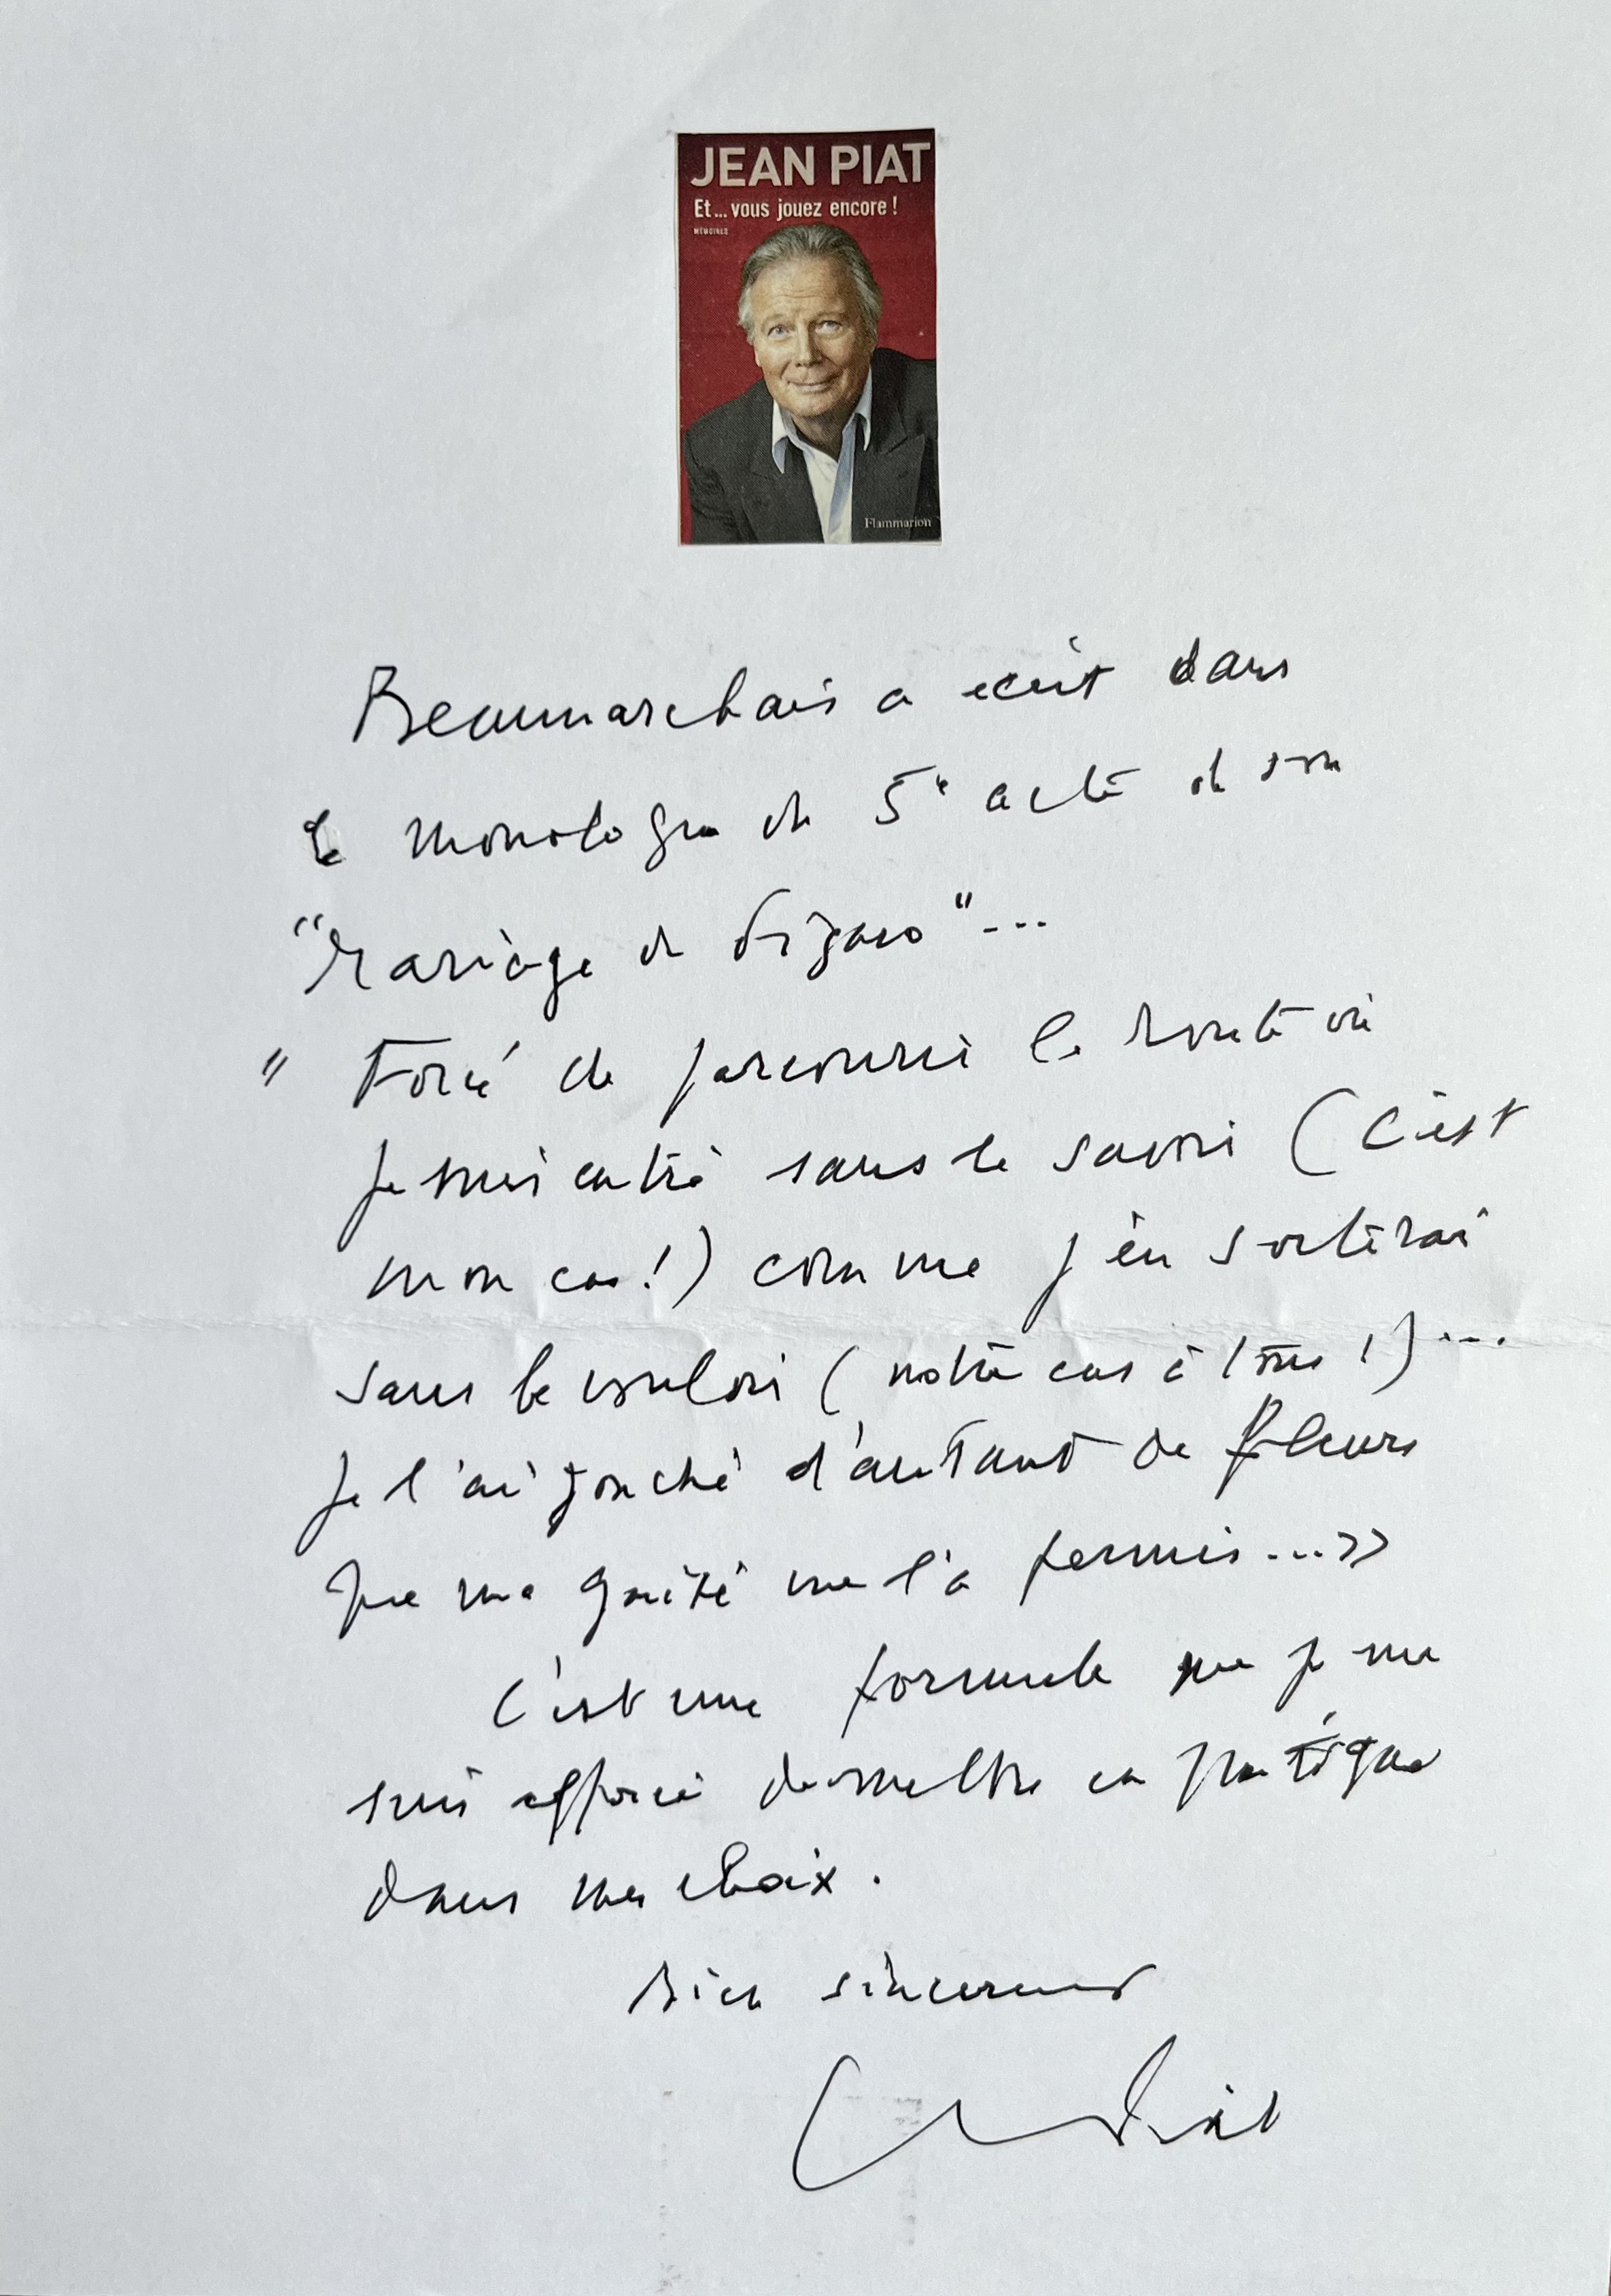 JEAN PIAT
Et... vous jouez encore !
MÉMOIRES
Flammarion
Beaumarchais a écrit dans
le monologue du 5e acte de son
"Mariage de Figaro"...
" Forcé de parcourir la route où
je suis entré sans le savoir ( C'est
mon cas !) comme j'en sortirai
sans le vouloir ( notre cas à tous !)...
je l'ai jonché d'autant de fleurs
que ma gaité me l'a permis...»
C'est une formule que je me
suis efforcé de mettre en pratique
dans mes choix.
Bien sincèrement
Piat